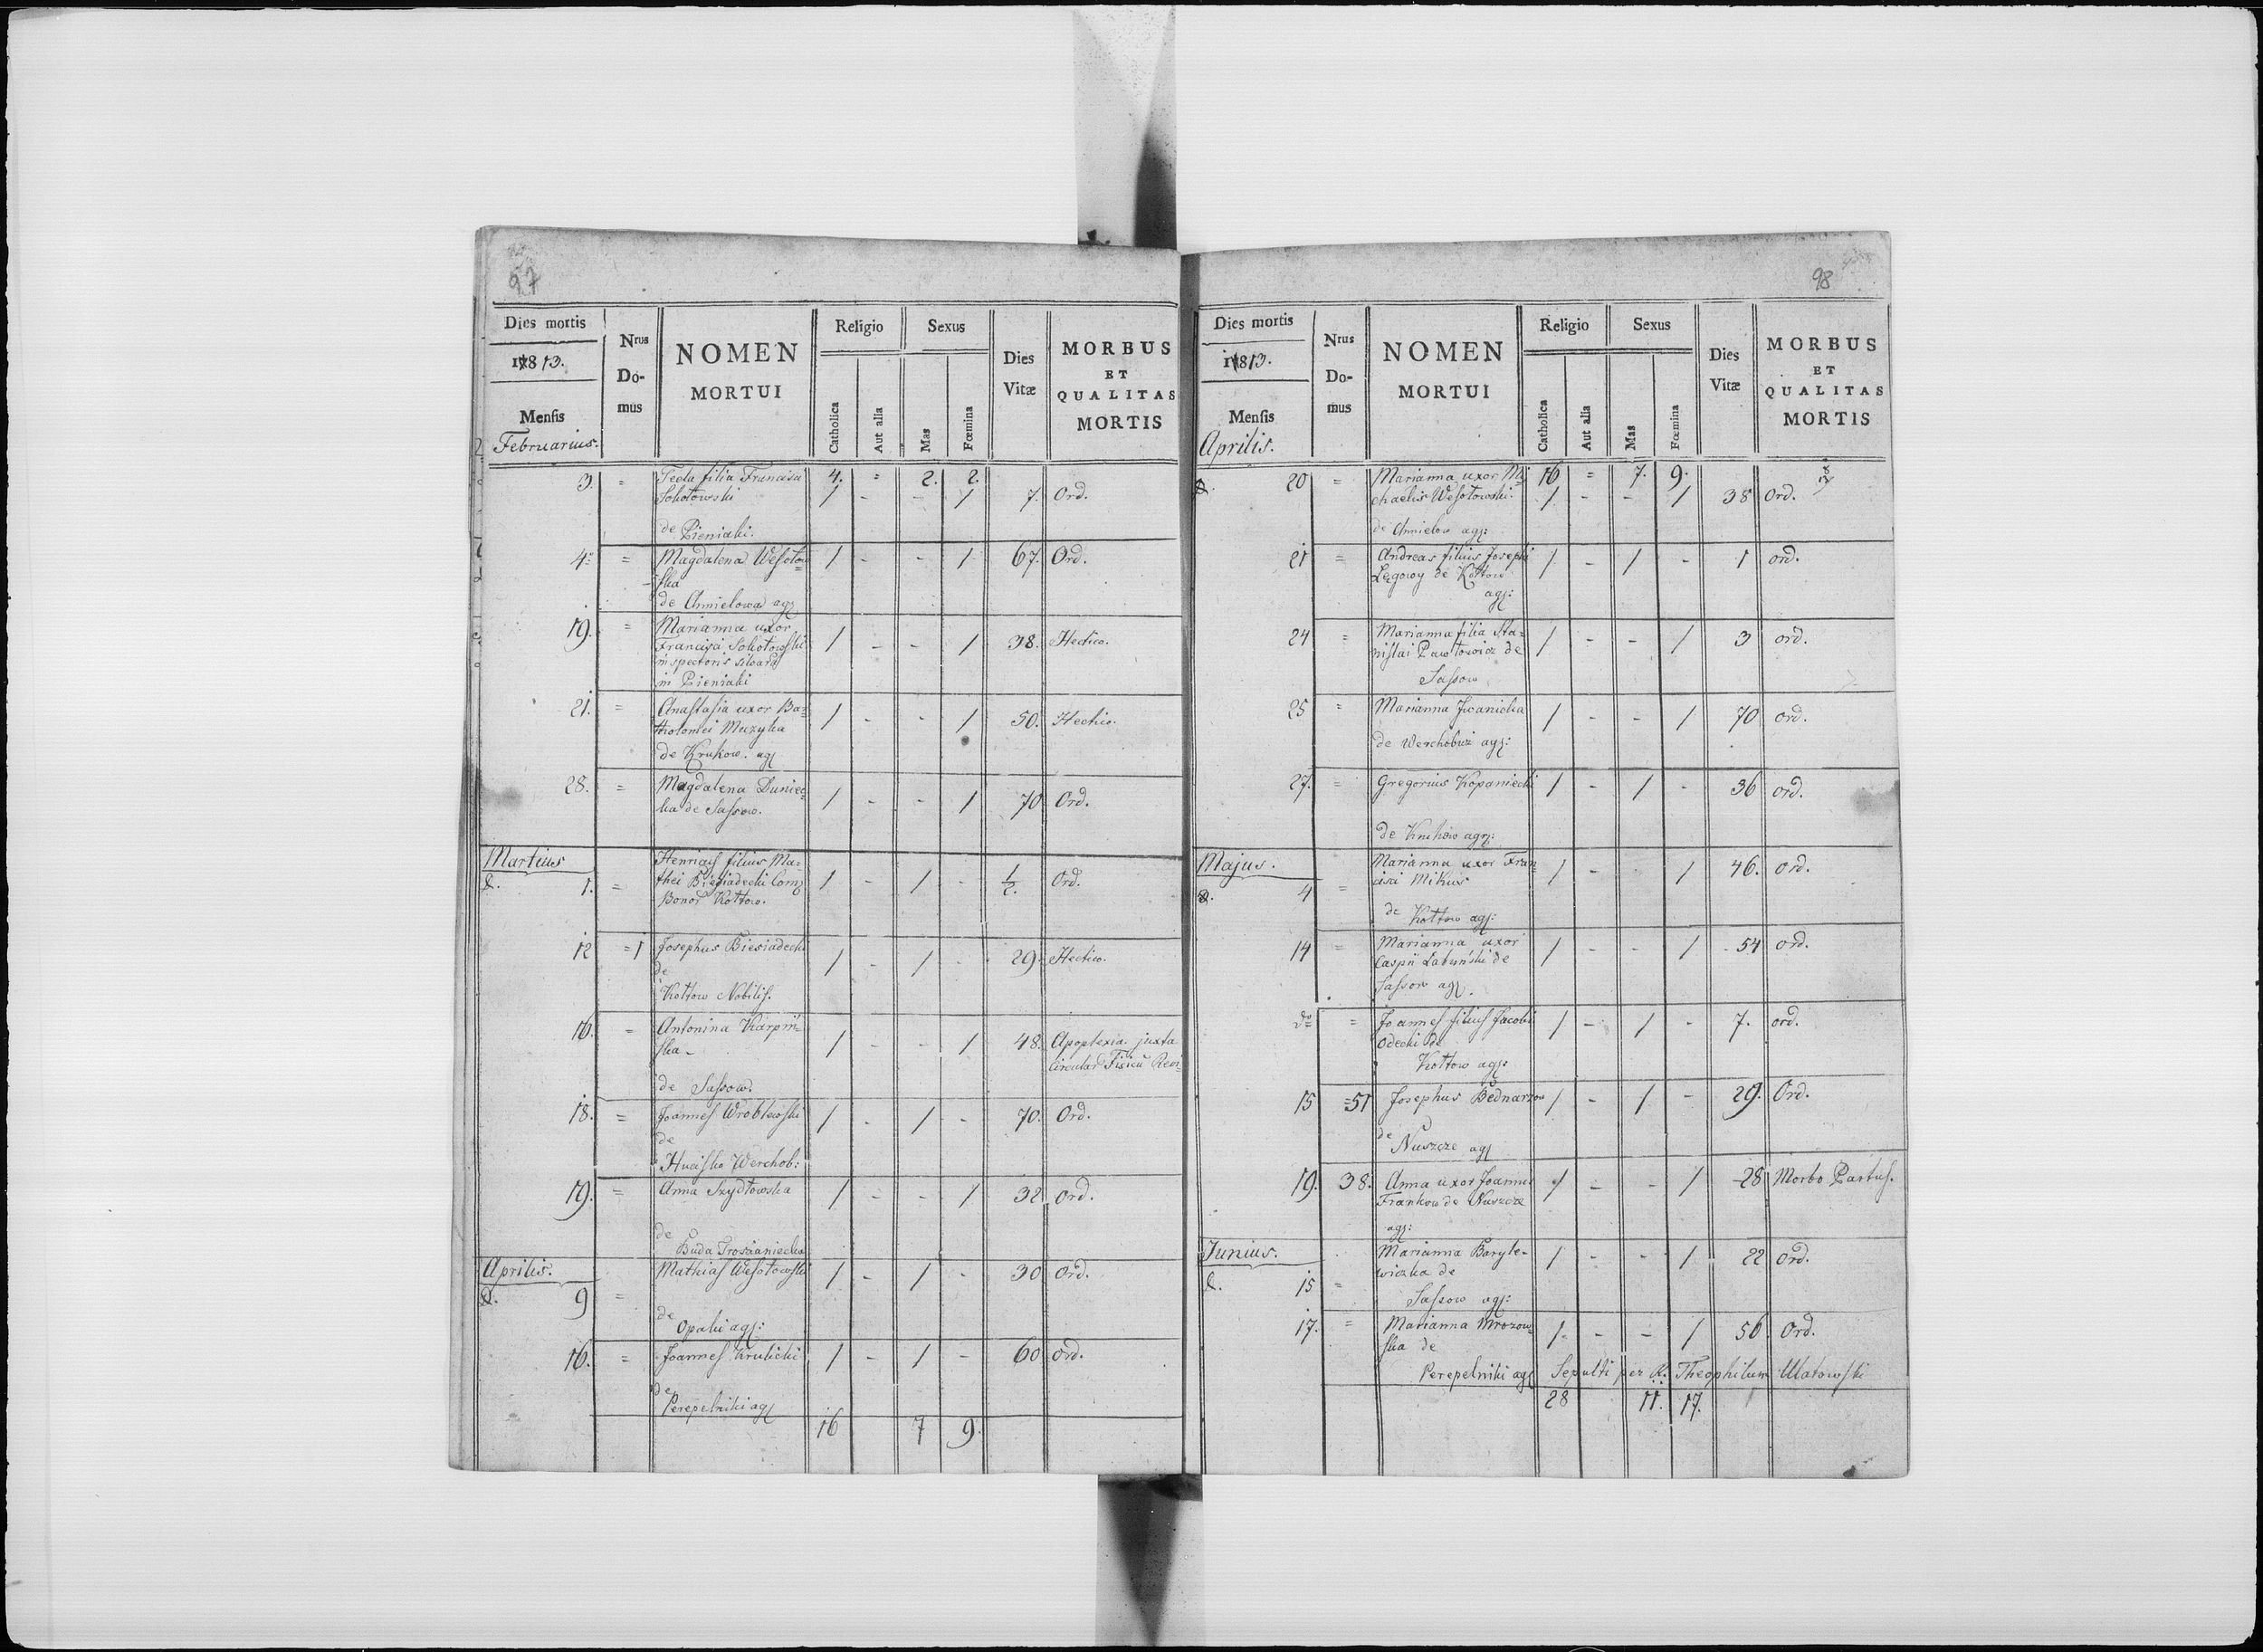 97
Dies mortis
1813.
Mensis
Februarius.
Nrus
Do-
mus
NOMEN
MORTUI
Religio
Catholica
Aut alia
Sexus
Mas
Fœmina
Dies
Vitæ
MORBUS
ET
QUALITAS
MORTIS
4. = 2. 2.
3. = Tecla filia Francisci 1 - - 1 7. Ord.
Sokołowski
de Pieniaki.
4. = Magdalena Wesołow= 1 - - 1 67. Ord.
ska
de Chmielowa agr
19. = Marianna uxor 1 - - 1 38. Hectica.
Francisci Sokołowski
inspectoris silvar
in Pieniaki
21. = Anastasia uxor Ba= 1 - - 1 50. Hectica.
tholomei Muzyka
de Krukow. agr
28. = Magdalena Duniec= 1 - - 1 70 Ord.
ka de Sassow.
Martius
d. 1. = Henricus filius Ma= 1 - 1 - 1/2. Ord.
thei Biesiadecki
Bonor Kołtow.
12 =1 Josephus Biesiadecki 1 - 1 - 29. Hectica.
de
Kołtow Nobilis.
16. = Antonina Karpiń= 1 - - 1 48. Apoplexia juxta
ska -
de Sassow.
18. = Joannes Wroblewski 1 - 1 - 70. Ord.
de
Huciska Werchob:
19. = Anna Szydłowska 1 - - 1 32 ord.
de
Buda Trościaniecka
Aprilis.
d. 9 = Mathias Wesołowski 1 - 1 - 30 ord.
de
Opaki agr:
16. = Joannes Krulicki 1 - 1 - 60 ord.
de
Perepelniki agr
16 7 9.
98
Dies mortis
1813.
Mensis
Aprilis.
Nrus
Do-
mus
NOMEN
MORTUI
Religio
Catholica
Aut alia
Sexus
Mas
Fœmina
Dies
Vitæ
MORBUS
ET
QUALITAS
MORTIS
16 = 7. 9.
d. 20 = Marianna uxor Mi= 1 - - 1 38 Ord.
chaelis Wesołowski
de Chmielow agr:
21 = Andreas filius Josephi 1 - 1 - 1 ord.
Łęgowy de Kołtow
agr:
24 = Marianna filia Sta= 1 - - 1 3 ord.
nislai Pawłowicz de
Sassow
25 = Marianna Iwanicka 1 - - 1 70 ord.
de Werchobuż agr:
27. = Gregorius Kopaniecki 1 - 1 - 36 ord.
de Krukow agr:
Majus.
d. 4 = Marianna uxor Fran= 1 - - 1 46. ord.
cisci Mikus
de Kołtow agr:
14 = Marianna uxor 1 - - 1 54 ord.
Łabuński de
Sassow agr.
do = Joannes filius Jacobi 1 - 1 - 7. ord.
Odecki de
Kołtow agr:
15 =51 Josephus Bednarzow 1 - 1 - 29. Ord.
de
Nuszcze agr
19. 38. Anna uxor Joannis 1 - - 1 28 Morbo Partus.
Frankow de Nuszcze
agr:
Junius.
d. 15 = Marianna Baryle= 1 - - 1 22 ord.
wiczka de
Sassow agr:
17. = Marianna Mrozow= 1. - - 1 56. Ord.
ska de
Perepelniki agr Sepulti per R. Theophilum Ulatowski
28 11. 17.